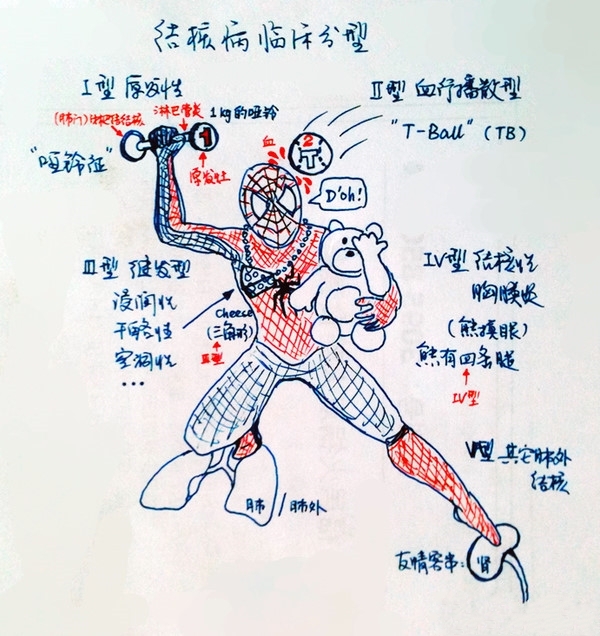 结核病临床分型
I型 原发性
(肺门)淋巴结结核
淋巴管炎
1kg的哑铃
"哑铃征"
1
原发灶
II型 血行播散型
"T-Ball"(TB)
血
2
T
D'oh!
III型 继发型
浸润性
干酪性
空洞性
...
cheese
(三角形)
III型
IV型 结核性
胸膜炎
(熊摸眼)
熊有四条腿
IV型
V型 其它肺外
结核
肺/肺外
友情客串:
肾